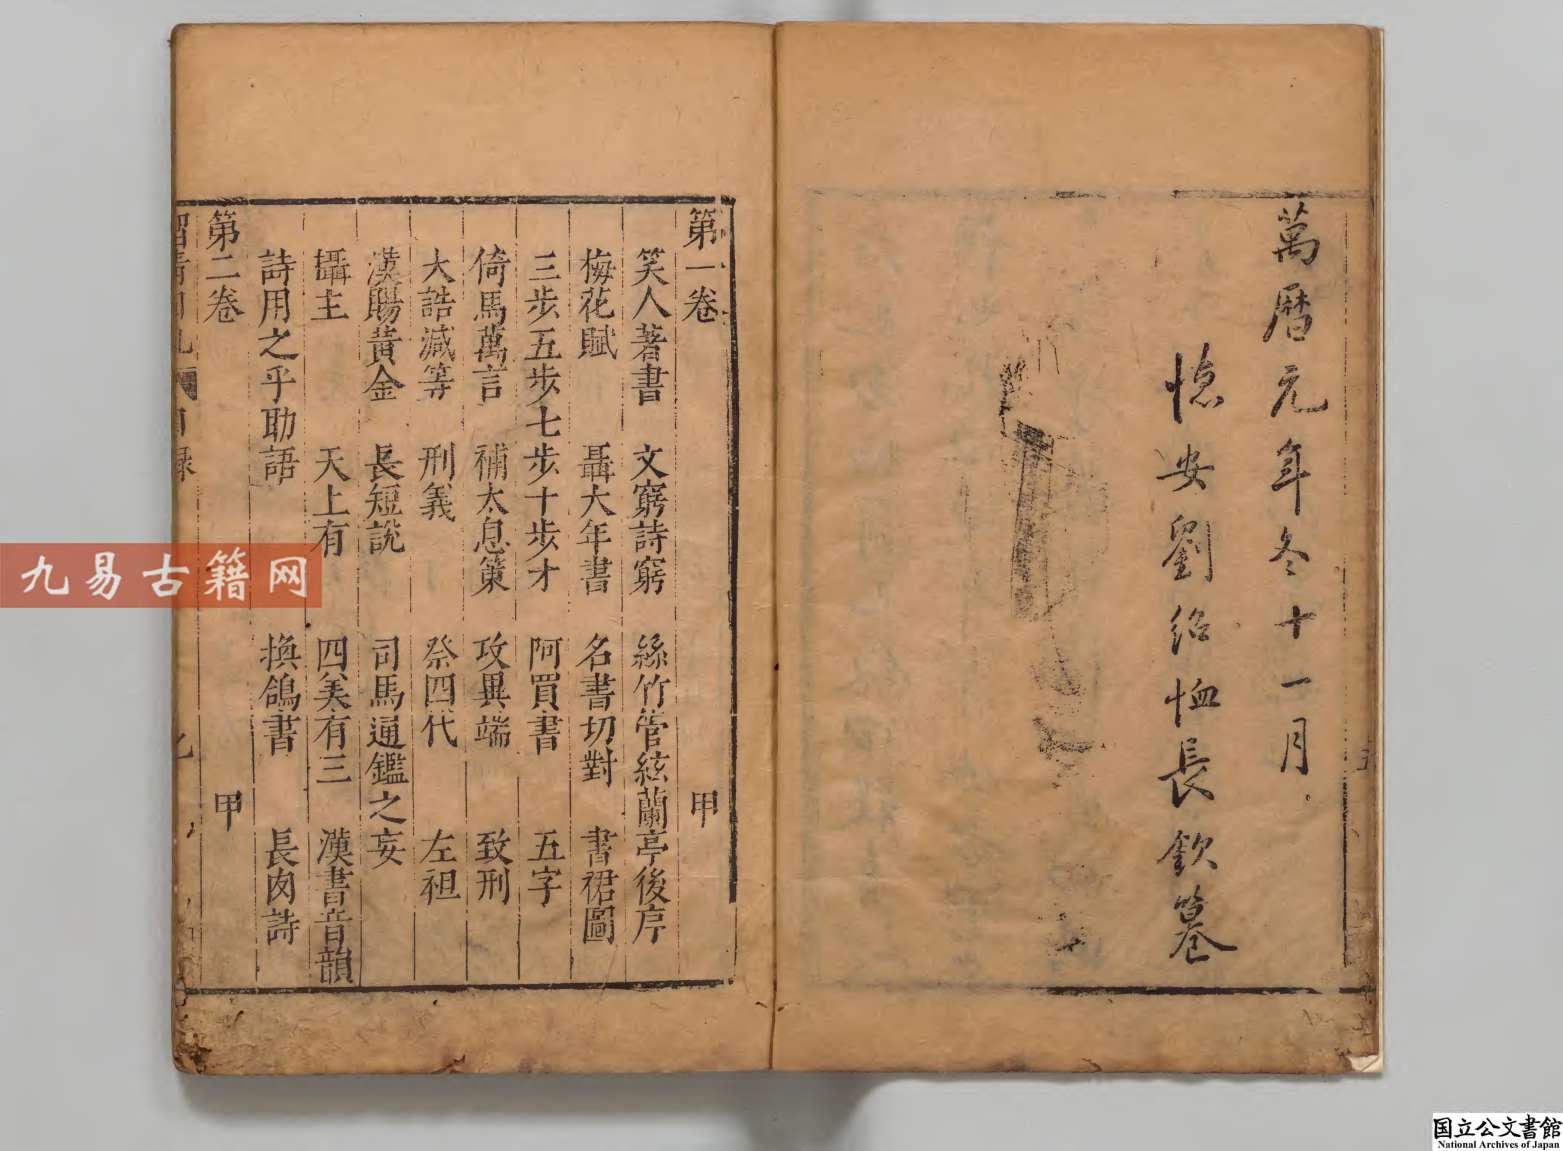 萬曆元年冬十一月
安劉紹恤長欽
第一卷 甲
笑人著書 文窮詩窮 絲竹管絃蘭亭後序
梅花賦 聶大年書 名書切對 書裙圖
三步五步七步十步才 阿買書 五字
倚馬萬言 補太息策 攻異端 致刑
大誥減等 刑義 祭四代 左袒
漢賜黃金 長短說 司馬通鑑之妄
攝主 天上有 四美有三 漢書音韻
詩用之乎助語 換鴿書 長肉詩
第二卷 甲
留青日札 目錄
九易古籍网
国立公文書館
National Archives of Japan